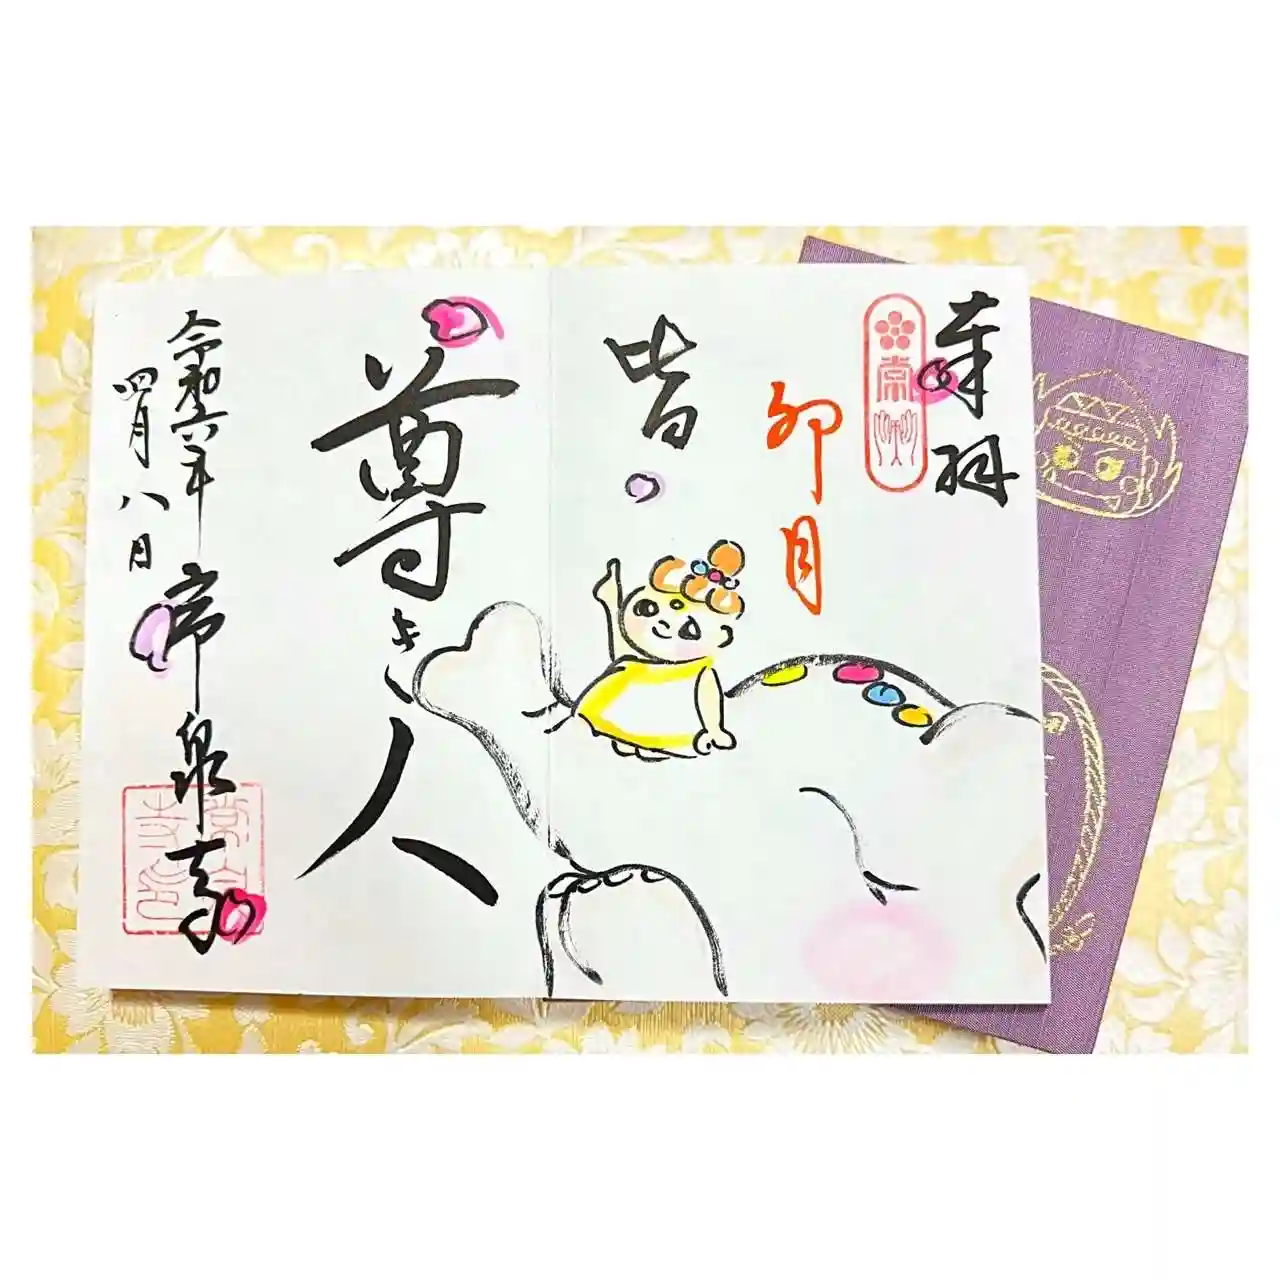 奉拝
常
卯月
皆
尊き人
令和六年
四月八日
常泉寺